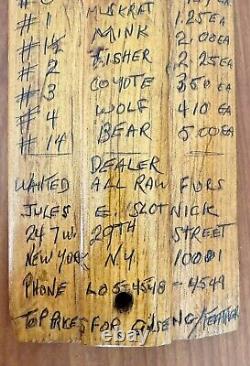 #1 MUSKRAT 1.25 EA
#1½ MINK 2.00 EA
#2 FISHER 2.25 EA
#3 COYOTE 3.50 EA
#4 WOLF 4.10 EA
#14 BEAR 5.00 EA
DEALER
WANTED ALL RAW FURS
JULES E. SLOTNICK
247 W 29TH STREET
NEW YORK N.Y. 10001
PHONE LO5-4548-4549
TOP PRICES FOR GINSENG/